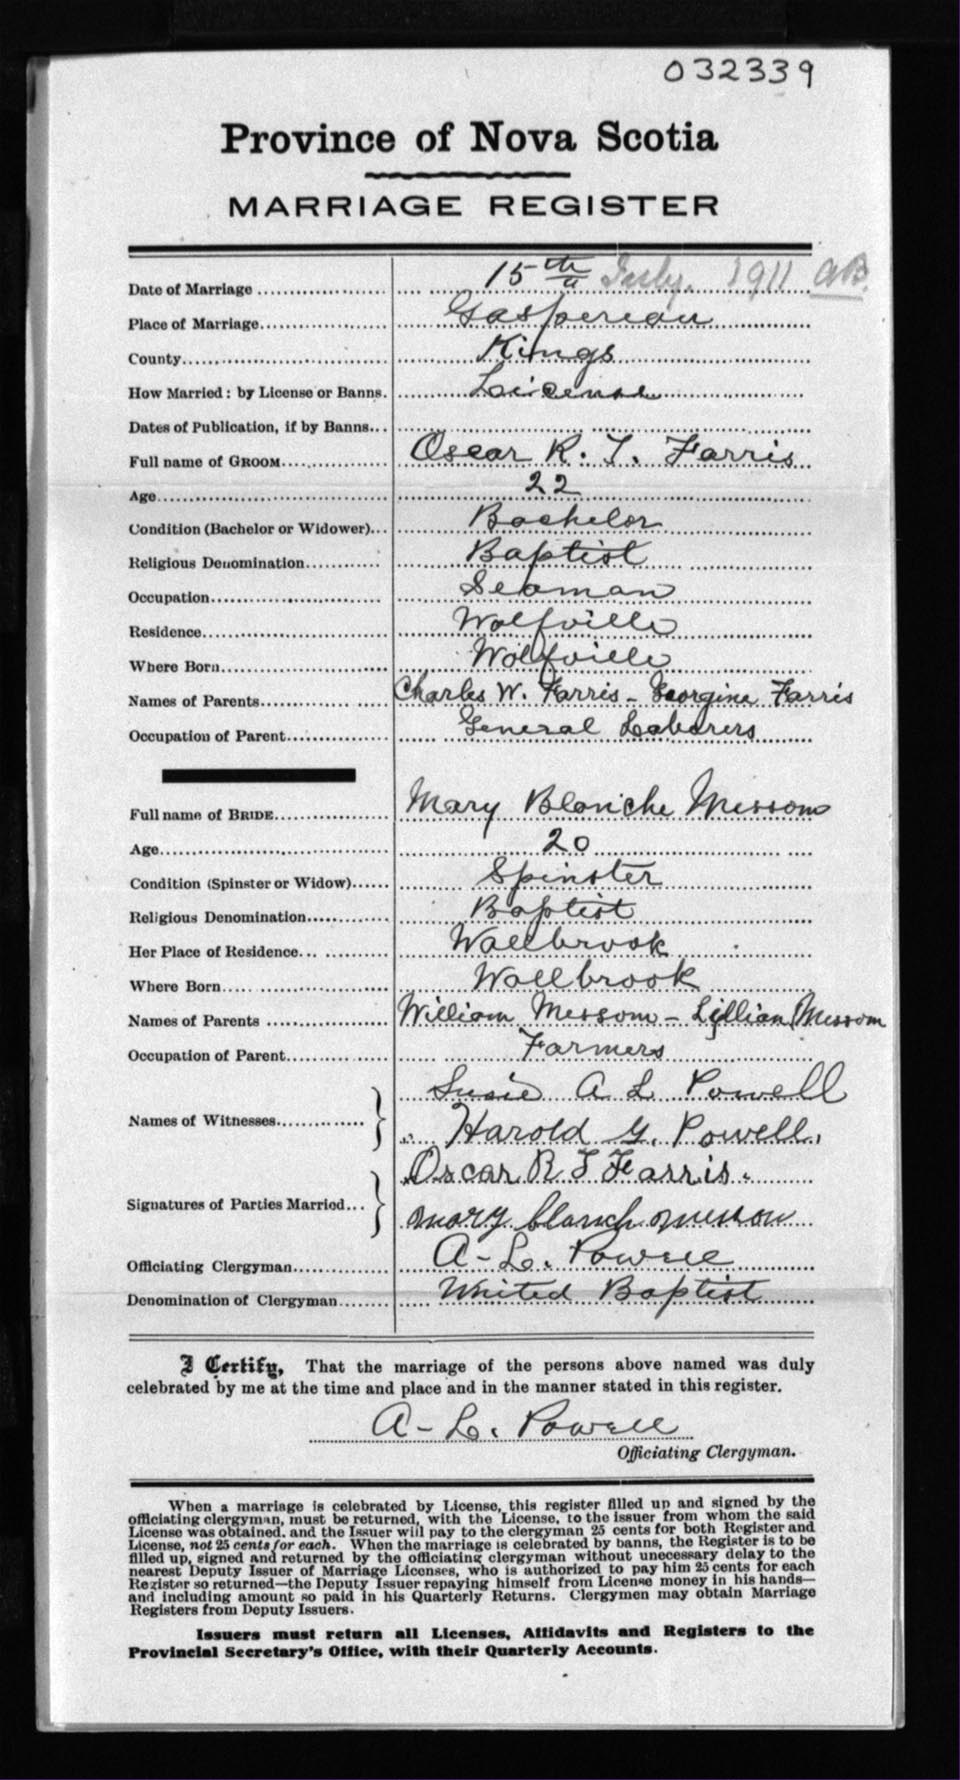 032339
Province of Nova Scotia
MARRIAGE REGISTER
Date of Marriage 15th July. 1911 AB.
Place of Marriage Gaspereau
County Kings
How Married: by License or Banns. License
Dates of Publication, if by Banns
Full name of GROOM Oscar R. T. Farris
Age 22
Condition (Bachelor or Widower) Bachelor
Religious Denomination Baptist
Occupation Seaman
Residence Wolfville
Where Born Wolfville
Names of Parents Charles W. Farris - Georgine Farris
Occupation of Parent General Laborers
Full name of BRIDE Mary Blanche Messom
Age 20
Condition (Spinster or Widow) Spinster
Religious Denomination Baptist
Her Place of Residence Wallbrook
Where Born Wallbrook
Names of Parents William Messom - Lillian Messom
Occupation of Parent Farmers
Susie A L Powell
Names of Witnesses
Harold G. Powell.
Oscar R T Farris.
Signatures of Parties Married
mary blanch messom
Officiating Clergyman A-L. Powell
Denomination of Clergyman United Baptist
I Certify, That the marriage of the persons above named was duly
celebrated by me at the time and place and in the manner stated in this register.
A-L. Powell
Officiating Clergyman.
When a marriage is celebrated by License, this register filled up and signed by the
officiating clergyman, must be returned, with the License, to the issuer from whom the said
License was obtained, and the Issuer will pay to the clergyman 25 cents for both Register and
License, not 25 cents for each. When the marriage is celebrated by banns, the Register is to be
filled up, signed and returned by the officiating clergyman without unnecessary delay to the
nearest Deputy Issuer of Marriage Licenses, who is authorized to pay him 25 cents for each
Register so returned—the Deputy Issuer repaying himself from License money in his hands—
and including amount so paid in his Quarterly Returns. Clergymen may obtain Marriage
Registers from Deputy Issuers.
Issuers must return all Licenses, Affidavits and Registers to the
Provincial Secretary's Office, with their Quarterly Accounts.